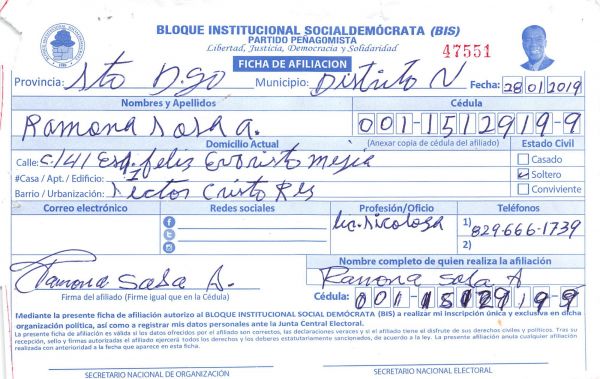 BLOQUE INSTITUCIONAL SOCIALDEMÓCRATA (BIS)
PARTIDO PEÑAGOMISTA
Libertad, Justicia, Democracia y Solidaridad
47551
FICHA DE AFILIACION
Provincia: Sto Dgo Municipio: Distrito N Fecha: 28 01 2019
Nombres y Apellidos Cédula
Ramona Sosa A. 001-1512919-9
Domicilio Actual (Anexar copia de cédula del afiliado) Estado Civil
Calle: C/41 Esq. Feliz Evaristo Mejia Casado
#Casa / Apt. / Edificio: Soltero
Barrio / Urbanización: Sector Cristo Rey Conviviente
Correo electrónico Redes sociales Profesión/Oficio Teléfonos
Lic. Sicologa 1) 829-666-1739
2)
Nombre completo de quien realiza la afiliación
Ramona Sosa A. Ramona Sosa A
Firma del afiliado (Firme igual que en la Cédula) Cédula: 001-1512919-9
Mediante la presente ficha de afiliación autorizo al BLOQUE INSTITUCIONAL SOCIAL DEMÓCRATA (BIS) a realizar mi inscripción única y exclusiva en dicha
organización política, así como a registrar mis datos personales ante la Junta Central Electoral.
La presente ficha de afiliación es válida si los datos ofrecidos por el afiliado son correctos, las declaraciones veraces y si el afiliado tiene el disfrute de sus derechos civiles y políticos. Tras su
recepción, sello y firmas autorizadas el afiliado ejercerá todos los derechos y los deberes estatutariamente sancionados, de acuerdo a la ley. La presente afiliación anula cualquier afiliación
realizada con anterioridad a la fecha que aparece en esta ficha.
SECRETARIO NACIONAL DE ORGANIZACIÓN SECRETARIO NACIONAL ELECTORAL